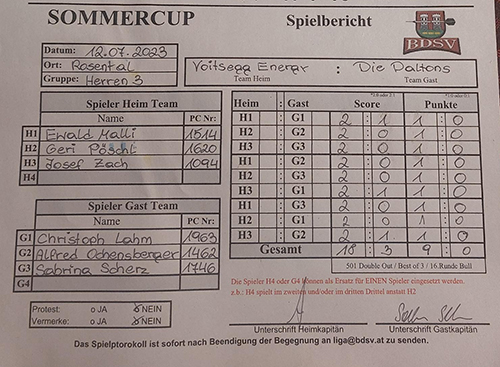 SOMMERCUP Spielbericht
BDSV
Datum: 12.07.2023
Ort: Rosental
Gruppe: Herren 3
Voitsegg Energy : Die Daltons
Team Heim Team Gast
Spieler Heim Team
Name PC Nr:
H1 Ewald Malli 1514
H2 Geri Pöschl 1620
H3 Josef Zach 1094
H4
Spieler Gast Team
Name PC Nr:
G1 Christoph Lahm 1963
G2 Alfred Ochensberger 1462
G3 Sabrina Scherz 1746
G4
Protest: o JA NEIN
Vermerke: o JA NEIN
Heim : Gast Score Punkte
H1 : G1 2 : 1 1 : 0
H2 : G2 2 : 0 1 : 0
H3 : G3 2 : 0 1 : 0
H1 : G2 2 : 0 1 : 0
H2 : G3 2 : 0 1 : 0
H3 : G1 2 : 1 1 : 0
H1 : G3 2 : 0 1 : 0
H2 : G1 2 : 0 1 : 0
H3 : G2 2 : 1 1 : 0
Gesamt 18 : 3 9 : 0
501 Double Out / Best of 3 / 16.Runde Bull
Die Spieler H4 oder G4 können als Ersatz für EINEN Spieler eingesetzt werden.
z.b.: H4 spielt im zweiten und/oder im dritten Drittel anstatt H2
Unterschrift Heimkapitän Unterschrift Gastkapitän
Das Spielptorokoll ist sofort nach Beendigung der Begegnung an liga@bdsv.at zu senden.